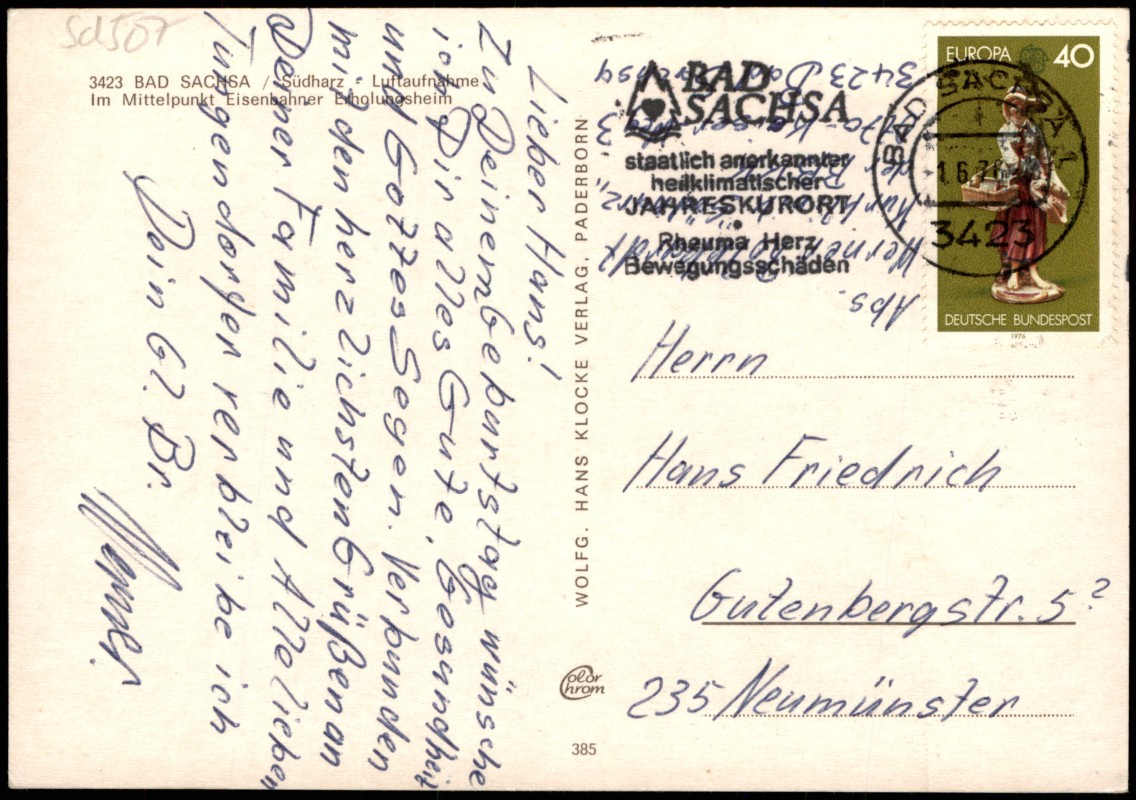 Sd507
3423 BAD SACHSA / Südharz - Luftaufnahme
Im Mittelpunkt Eisenbahner Erholungsheim
Lieber Hans!
Zu Deinem Geburtstag wünsche
ich Dir alles Gute, Gesundheit
und Gottes Segen. Verbunden
mit den herzlichsten Grüßen an
Deiner Familie und Alle lieben
Tungendorfer verbleibe ich
Dein Gl. Br.
Werner.
WOLFG. HANS KLOCKE VERLAG, PADERBORN
Color
Chrom
385
BAD
SACHSA
staatlich anerkannter
heilklimatischer
JAHRESKURORT
Rheuma Herz
Bewegungsschäden
Abs.
Werner
3423 Bad Sachsa
EUROPA 40
DEUTSCHE BUNDESPOST
1976
BAD SACHSA 1
3423
Herrn
Hans Friedrich
Gutenbergstr. 5?
235 Neumünster